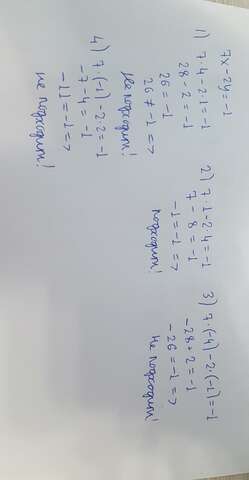 7x-2y=-1
1) 7·4-2·1=-1
28-2=-1
26=-1
26≠-1=>
не подходит!
2) 7·1-2·4=-1
7-8=-1
-1=-1=>
подходит!
3) 7·(-4)-2·(-1)=-1
-28+2=-1
-26=-1=>
не подходит!
4) 7·(-1)-2·2=-1
-7-4=-1
-11=-1=>
не подходит!